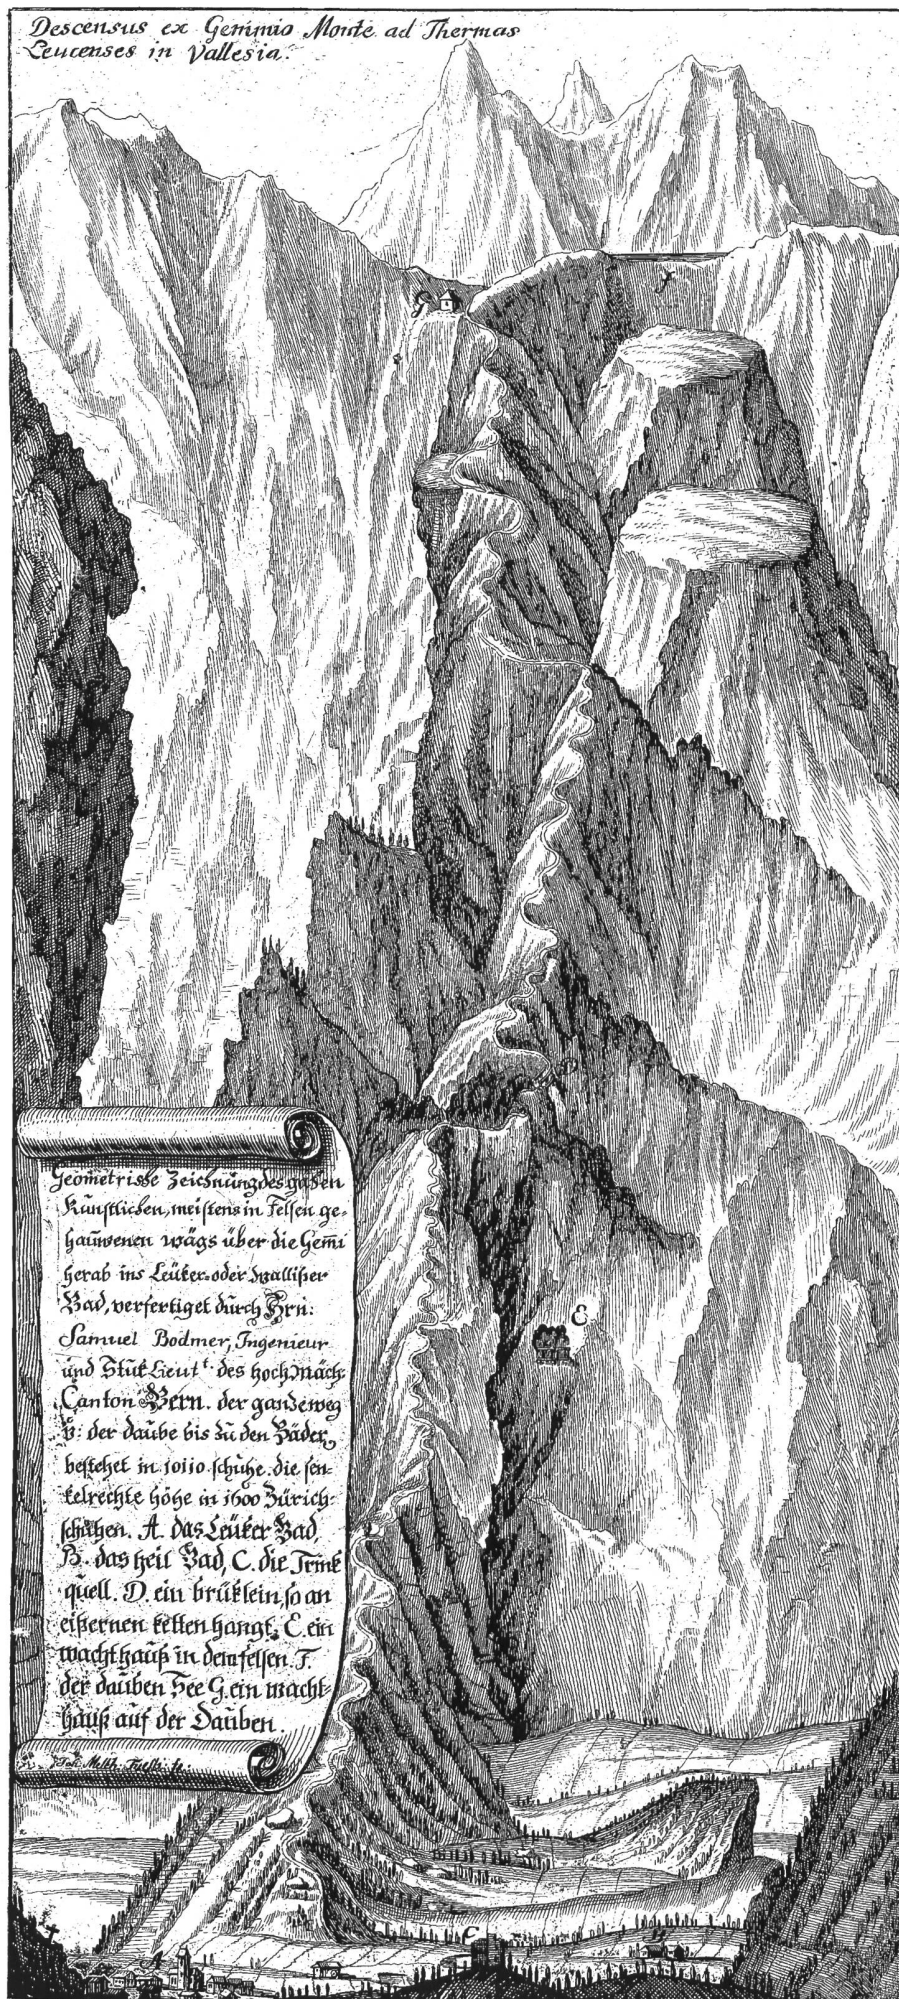 Descensus ex Gemmio Monte ad Thermas
Leucenses in Vallesia.
G
f
E
D
Geometrisse Zeichnung des gantzen
Künstlichen, meistens in Felsen ge-
hauwenen wägs über die Gem̄i
herab ins Leüker- oder Wallißer
Bad, verfertiget durch Hrn:
Samuel Bodmer, Ingenieur
und Stuk Lieut.t des hochMäch:
Canton Bern. der gantze weg
v: der daube bis zu den Bäder,
bestehet in 10110 schuhe. die sen-
kelrechte höhe in 1600 Zürich-
schuhen. A. das Leüker Bad,
B. das heil Bad, C. die Trink
quell. D. ein brüklein, so an
eißernen ketten hangt. E. ein
wacht hauß in dem felsen F.
der dauben See G. ein wacht-
hauß auf der Dauben.
Joh. Melch. Füeßli. fe.
C
B
A